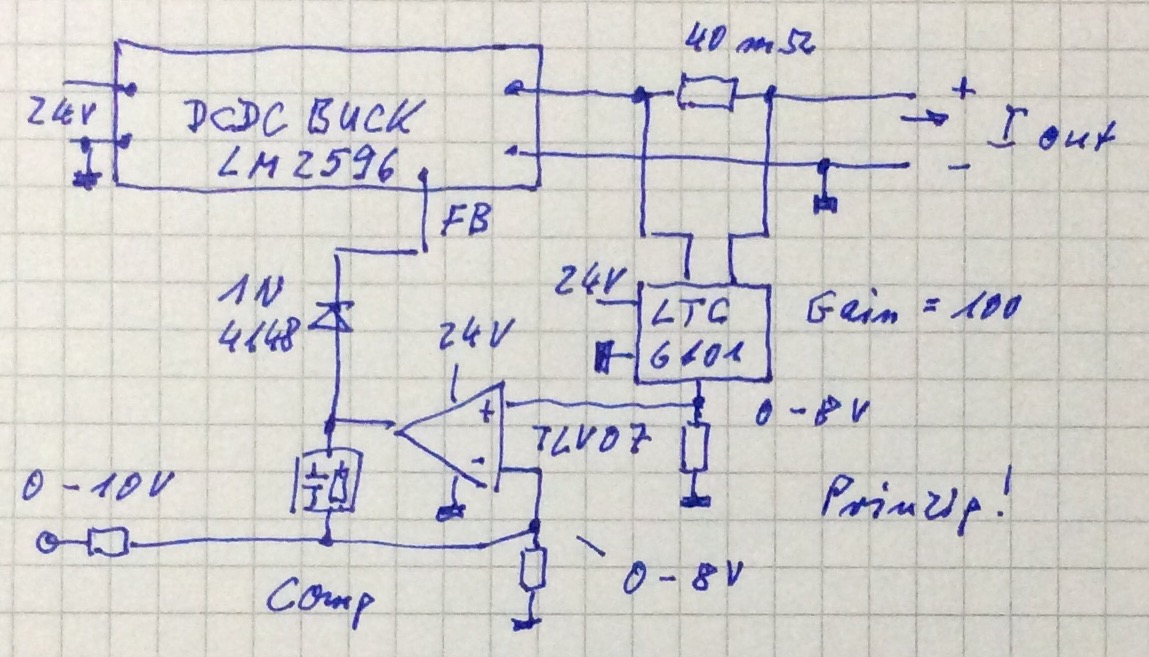 40 mΩ
24V
DCDC BUCK
LM2596
+
I out
-
FB
1N
4148
24V
24V
LTC
6101
Gain = 100
+
-
TLV07
0-8V
0-10V
Prinzip!
0-8V
Comp